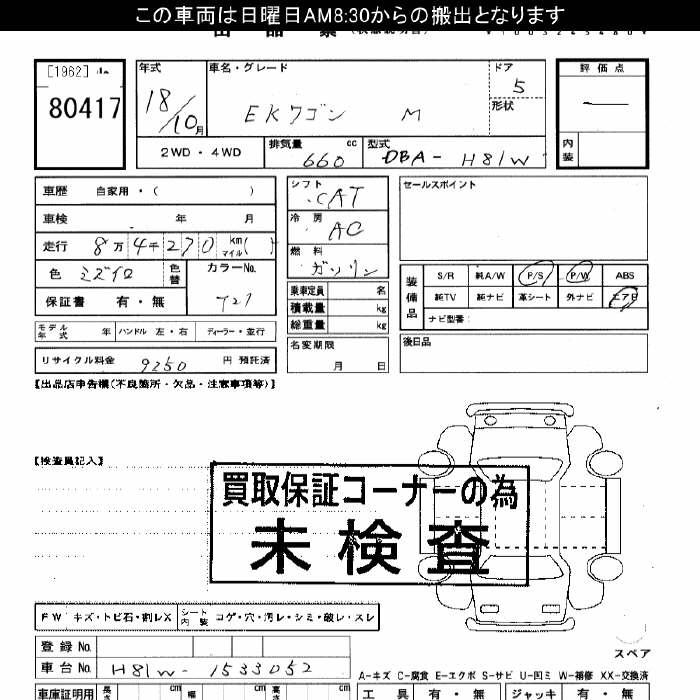 この車両は日曜日AM8:30からの搬出となります
[1962]
80417
年式
車名・グレード
ドア
5
形状
評価点
内装
18/10月
EKワゴン M
2WD・4WD
排気量 660 cc
型式 DBA- H81W
車歴 自家用・( )
車検 年 月
走行 8万4千270km マイル( )
色 ミズイロ
色替
カラーNo. T27
保証書 有・無
シフト CAT
冷房 AC
燃料 ガソリン
乗車定員 名
積載量 kg
総重量 kg
セールスポイント
装備品
S/R 純A/W P/S P/W ABS
純TV 純ナビ 革シート 外ナビ エアB
ナビ型番:
モデル年式 年 ハンドル 左・右 ディーラー・並行
リサイクル料金 9250 円 預託済
名変期限 月 日
後日品
【出品店申告欄(不良箇所・欠品・注意事項等)】
【検査員記入】
買取保証コーナーの為
未検査
FW キズ・トビ石・割レX シート内装 コゲ・穴・汚レ・シミ・破レ・スレ
登録No.
車台No. H81W-1533052
スペア
A-キズ C-腐食 E-エクボ S-サビ U-凹ミ W-補修 XX-交換済
車庫証明用 長さ cm 幅 cm 高さ cm
工具 有・無 ジャッキ 有・無